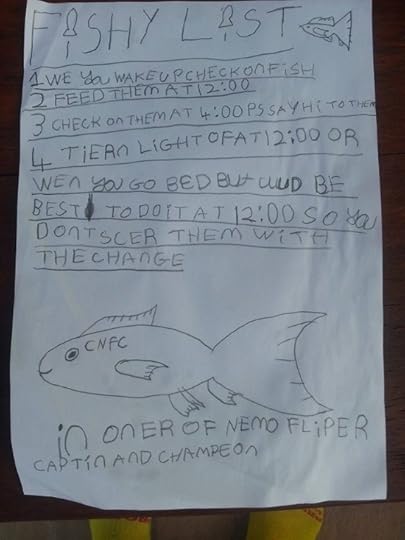 FISHY LIST
1 WE YOU WAKE UP CHECK ON FISH
2 FEED THEM AT 12:00
3 CHECK ON THEM AT 4:00 PS SAY HI TO THEM
4 TIERN LIGHT OFAT 12:00 OR
WEN YOU GO BED BUT WUD BE
BEST TO DO IT AT 12:00 SO YOU
DONT SCER THEM WITH
THE CHANGE
CNFC
IN ONER OF NEMO FLIPER
CAPTIN AND CHAMPEON